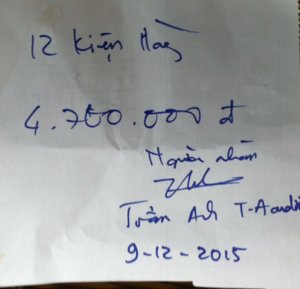 12 kiện Hàng
4.700.000 đ
Người nhận
Trần Anh T-Aaudio
9-12-2015